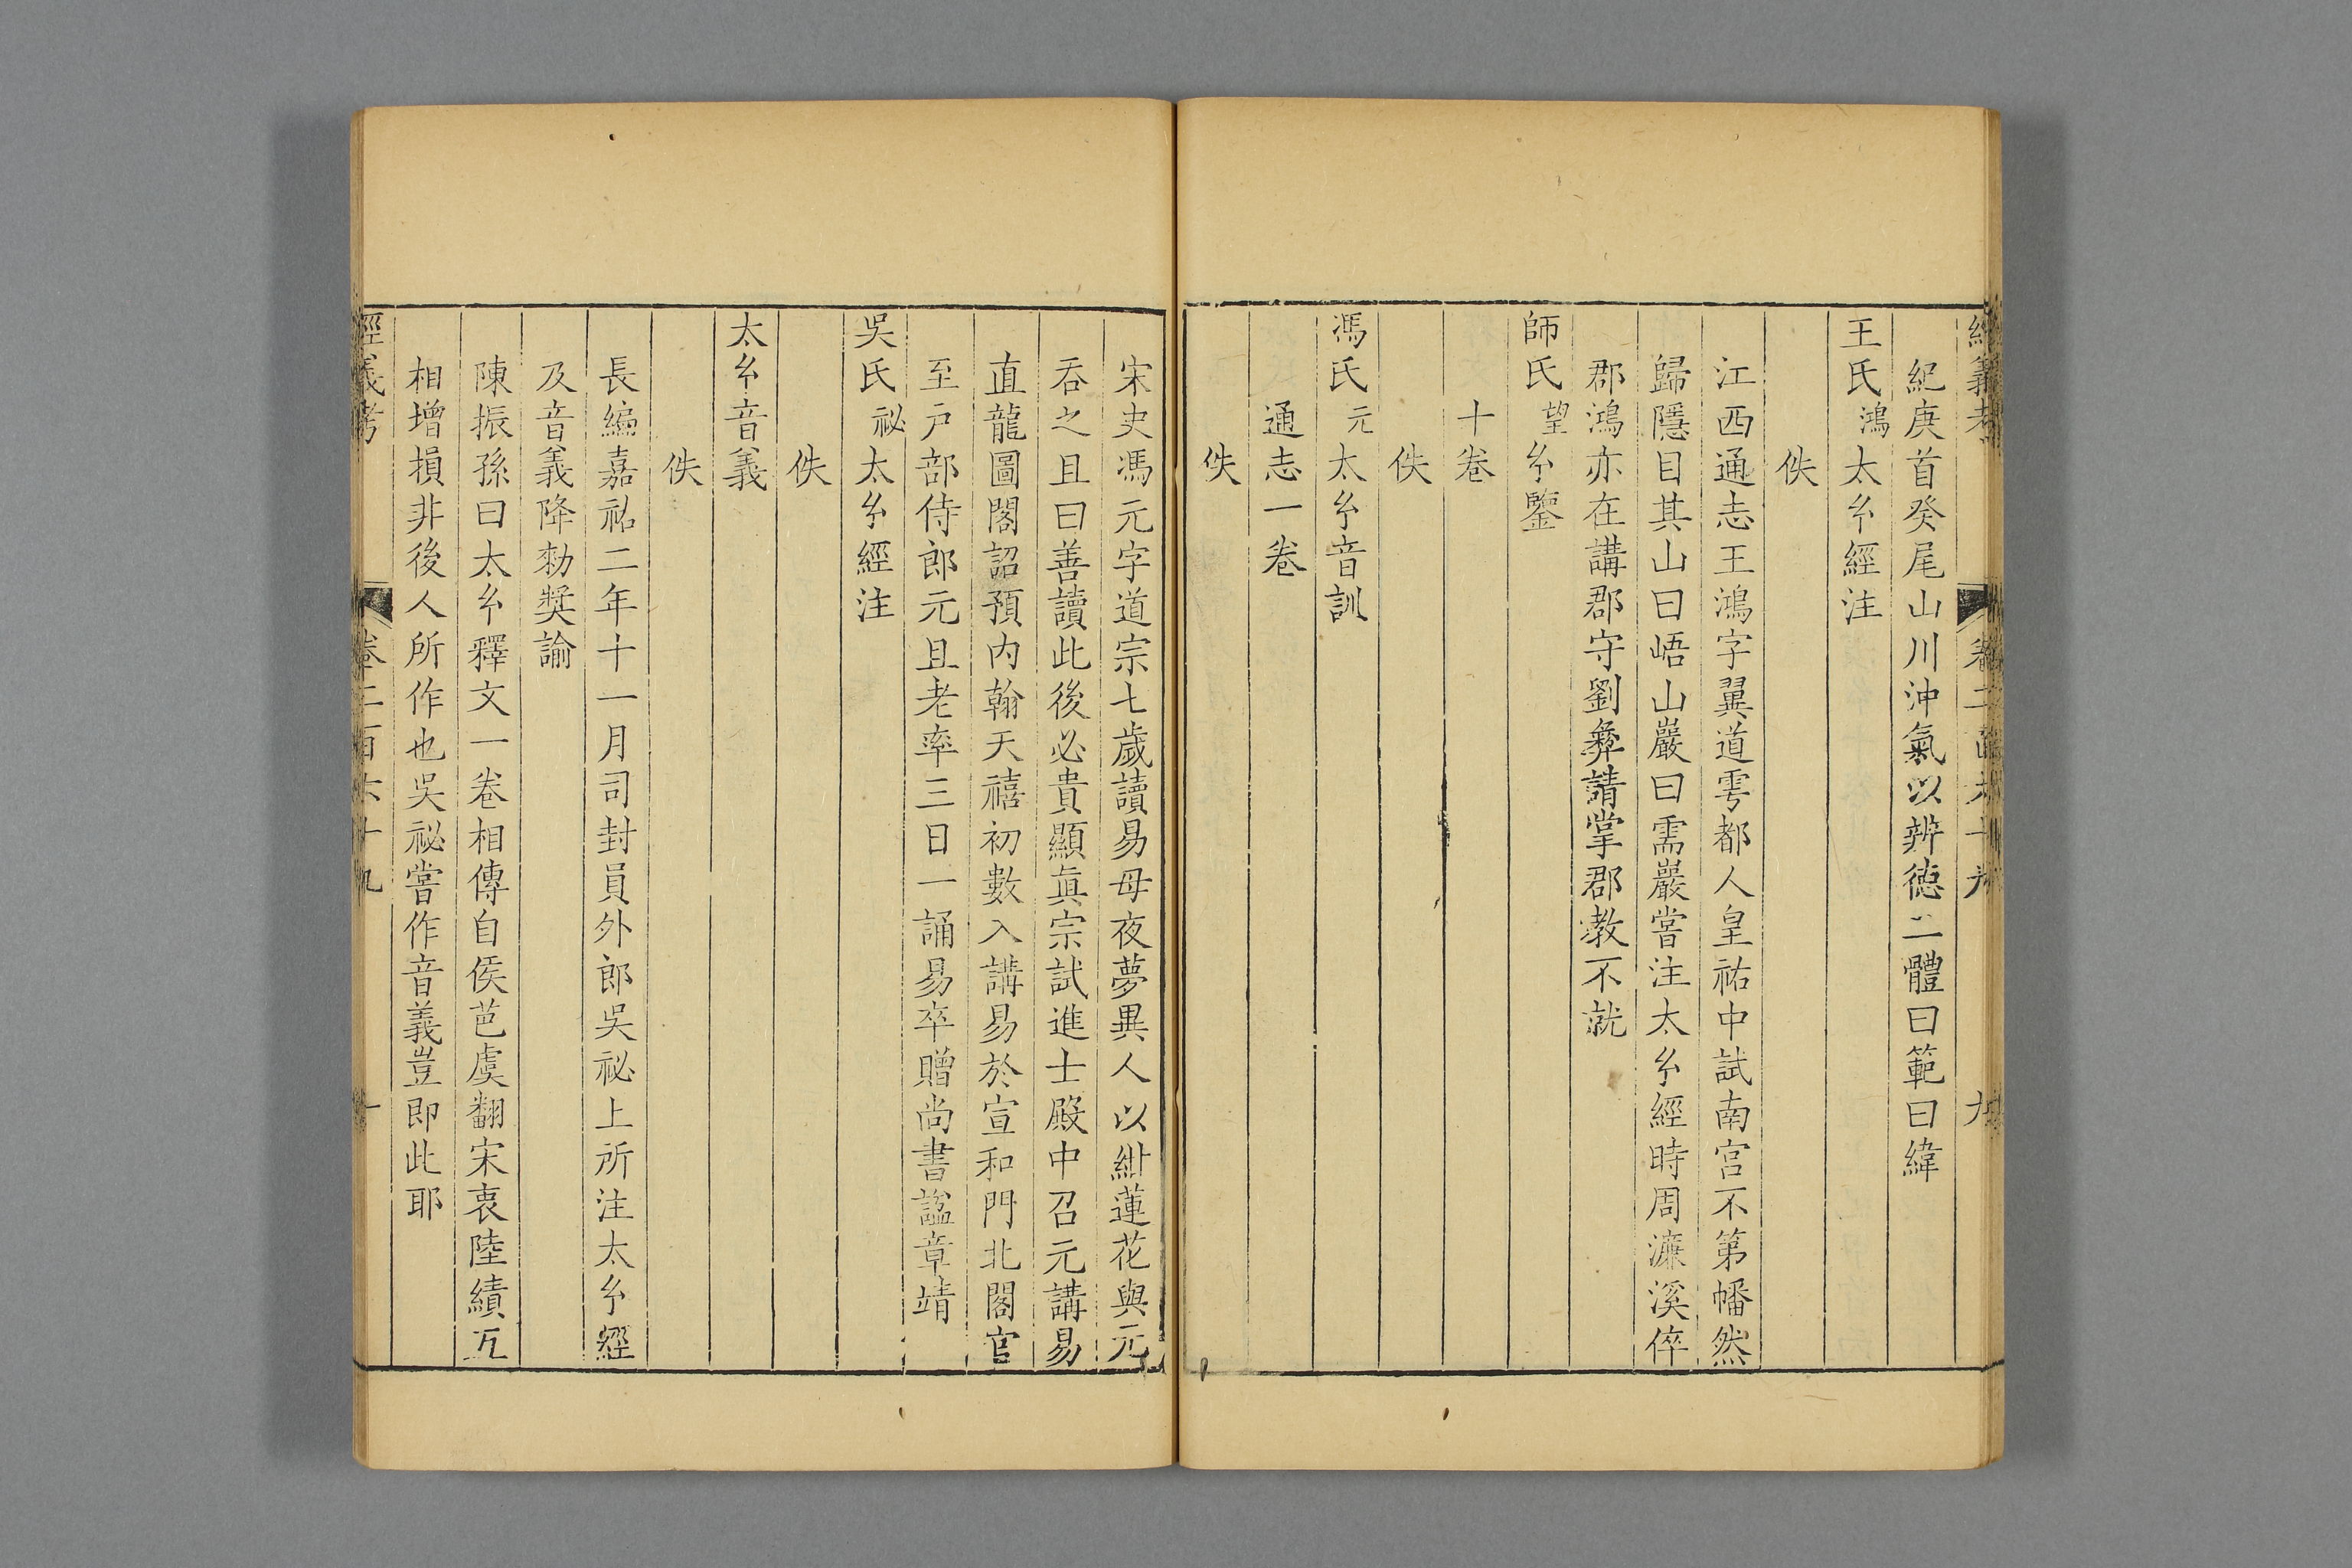 經義考 卷二百六十九 九
紀庚首癸尾山川沖氣以辨德二體曰範曰緯
王氏鴻太𤣥經注
佚
江西通志王鴻字翼道雩都人皇祐中試南宮不第幡然
歸隱目其山曰峿山巖曰需巖嘗注太𤣥經時周濂溪倅
郡鴻亦在講郡守劉彝請掌郡教不就
師氏望𤣥鑒
十卷
佚
馮氏元太𤣥音訓
通志一卷
佚
宋史馮元字道宗七歲讀易母夜夢異人以紺蓮花與元
吞之且曰善讀此後必貴顯眞宗試進士殿中召元講易
直龍圖閣詔預内翰天禧初數入講易於宣和門北閣官
至戶部侍郎元且老率三日一誦易卒贈尚書諡章靖
吳氏祕太𤣥經注
佚
太𤣥音義
佚
長編嘉祐二年十一月司封員外郎吳祕上所注太𤣥經
及音義降勑奬諭
陳振孫曰太𤣥釋文一卷相傳自侯芭虞翻宋衷陸績互
相增損非後人所作也吳祕嘗作音義豈即此耶
經義考 卷二百六十九 十